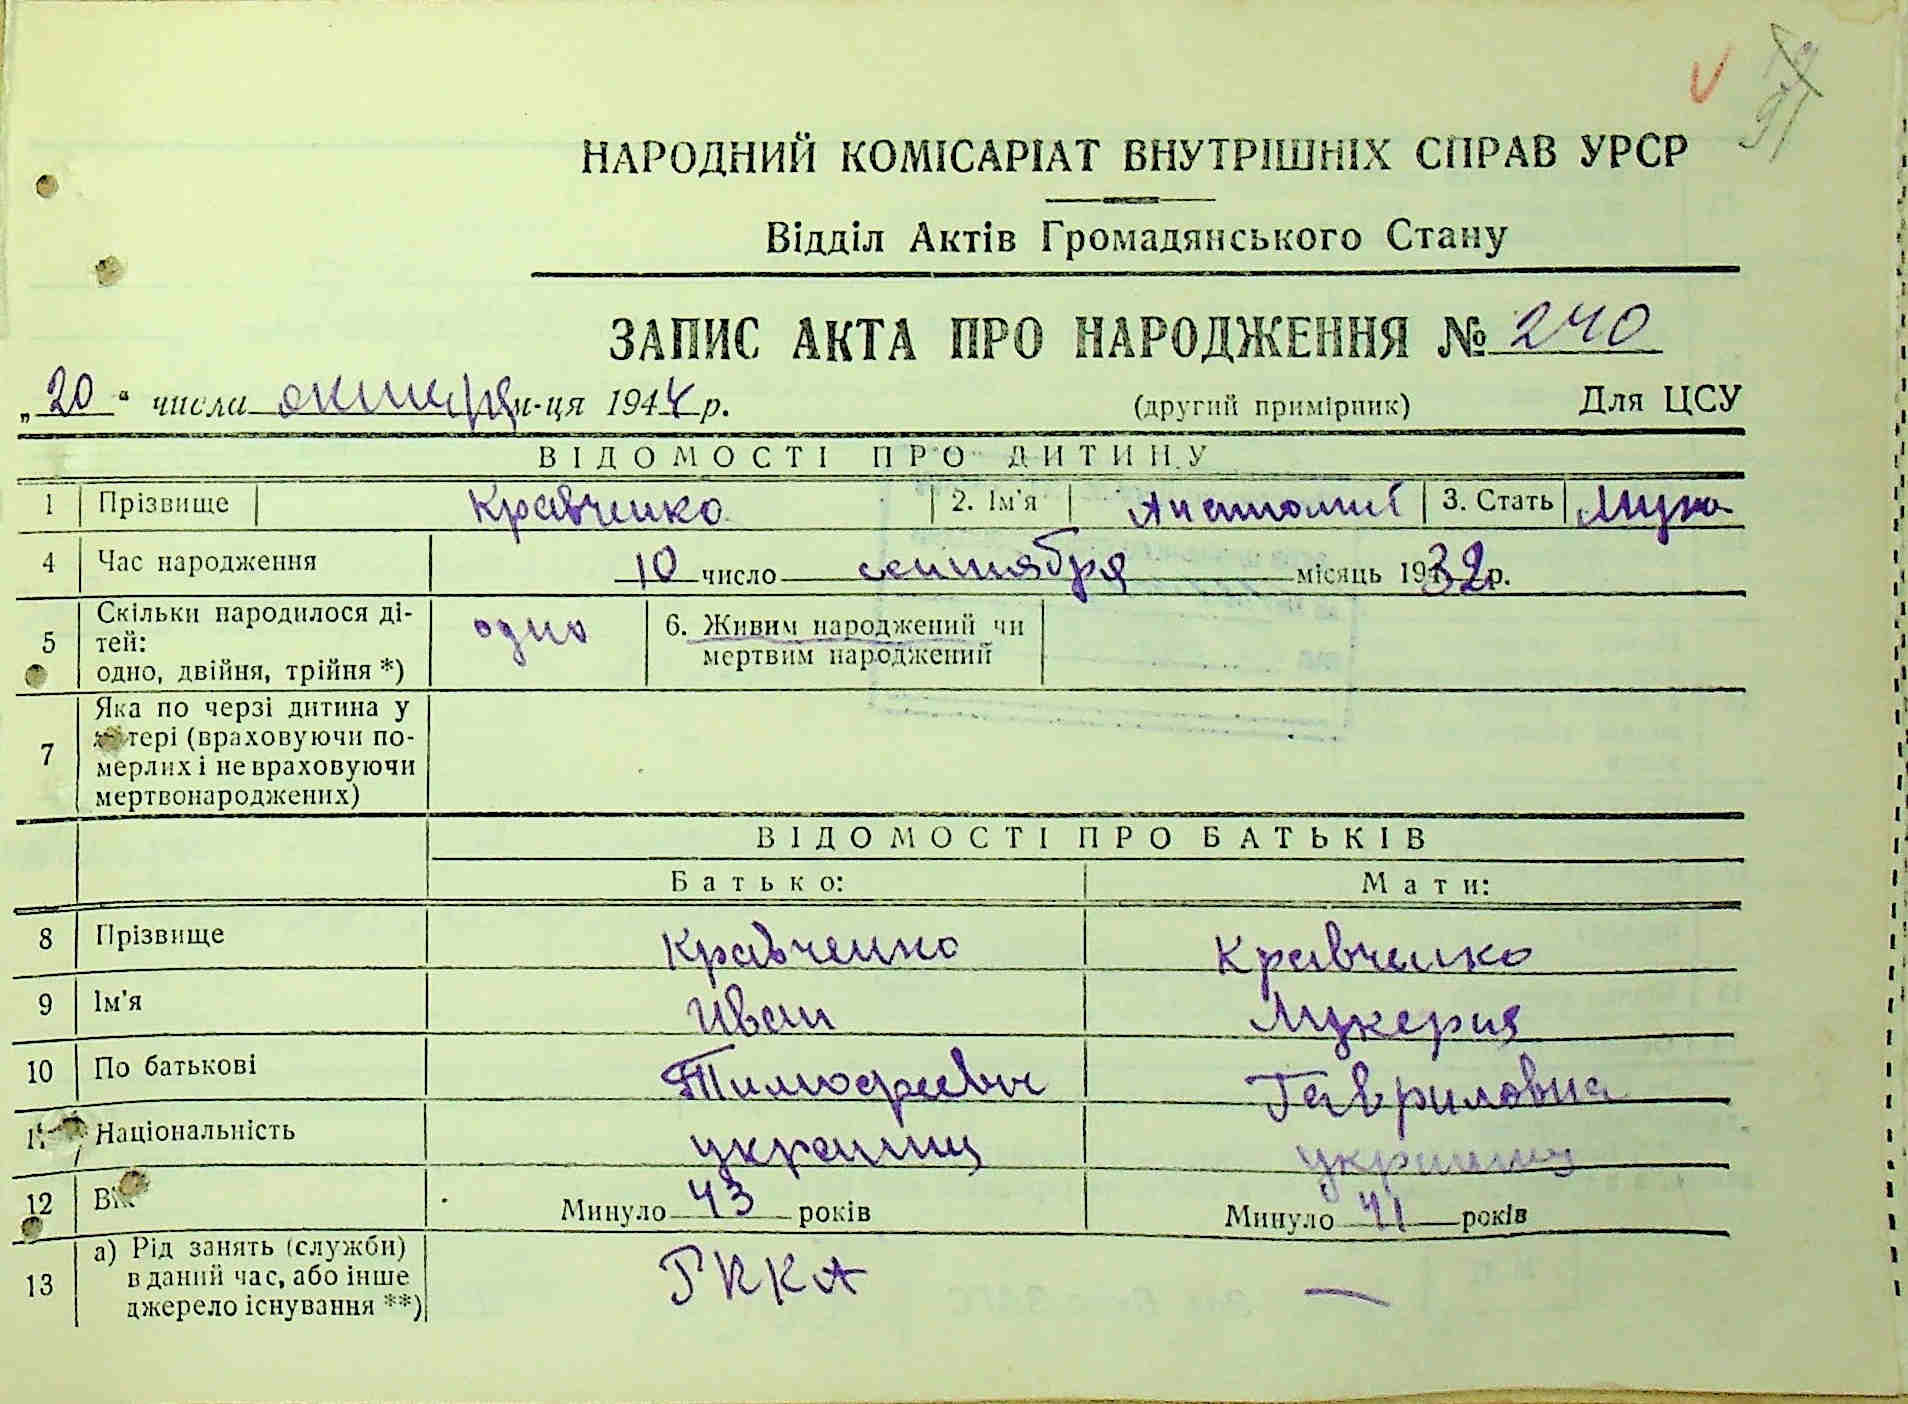 НАРОДНИЙ КОМІСАРІАТ ВНУТРІШНІХ СПРАВ УРСР
Відділ Актів Громадянського Стану
ЗАПИС АКТА ПРО НАРОДЖЕННЯ № 240
„20“ числа октября м-ця 1944 р. (другий примірник) Для ЦСУ
ВІДОМОСТІ ПРО ДИТИНУ
1 Прізвище Кравченко 2. Ім'я Анатолий 3. Стать Муж
4 Час народження 10 число сентября місяць 1932 р.
5 Скільки народилося ді-
тей:
одно, двійня, трійня *) одно 6. Живим народжений чи
мертвим народжений
7 Яка по черзі дитина у
матері (враховуючи по-
мерлих і не враховуючи
мертвонароджених)
ВІДОМОСТІ ПРО БАТЬКІВ
Батько: Мати:
8 Прізвище Кравченко Кравченко
9 Ім'я Иван Лукерия
10 По батькові Тимофеевич Гавриловна
11 Національність украинц украинц
12 Вік Минуло 43 років Минуло 41 років
13 а) Рід занять (служби)
в даний час, або інше
джерело існування **) РККА —